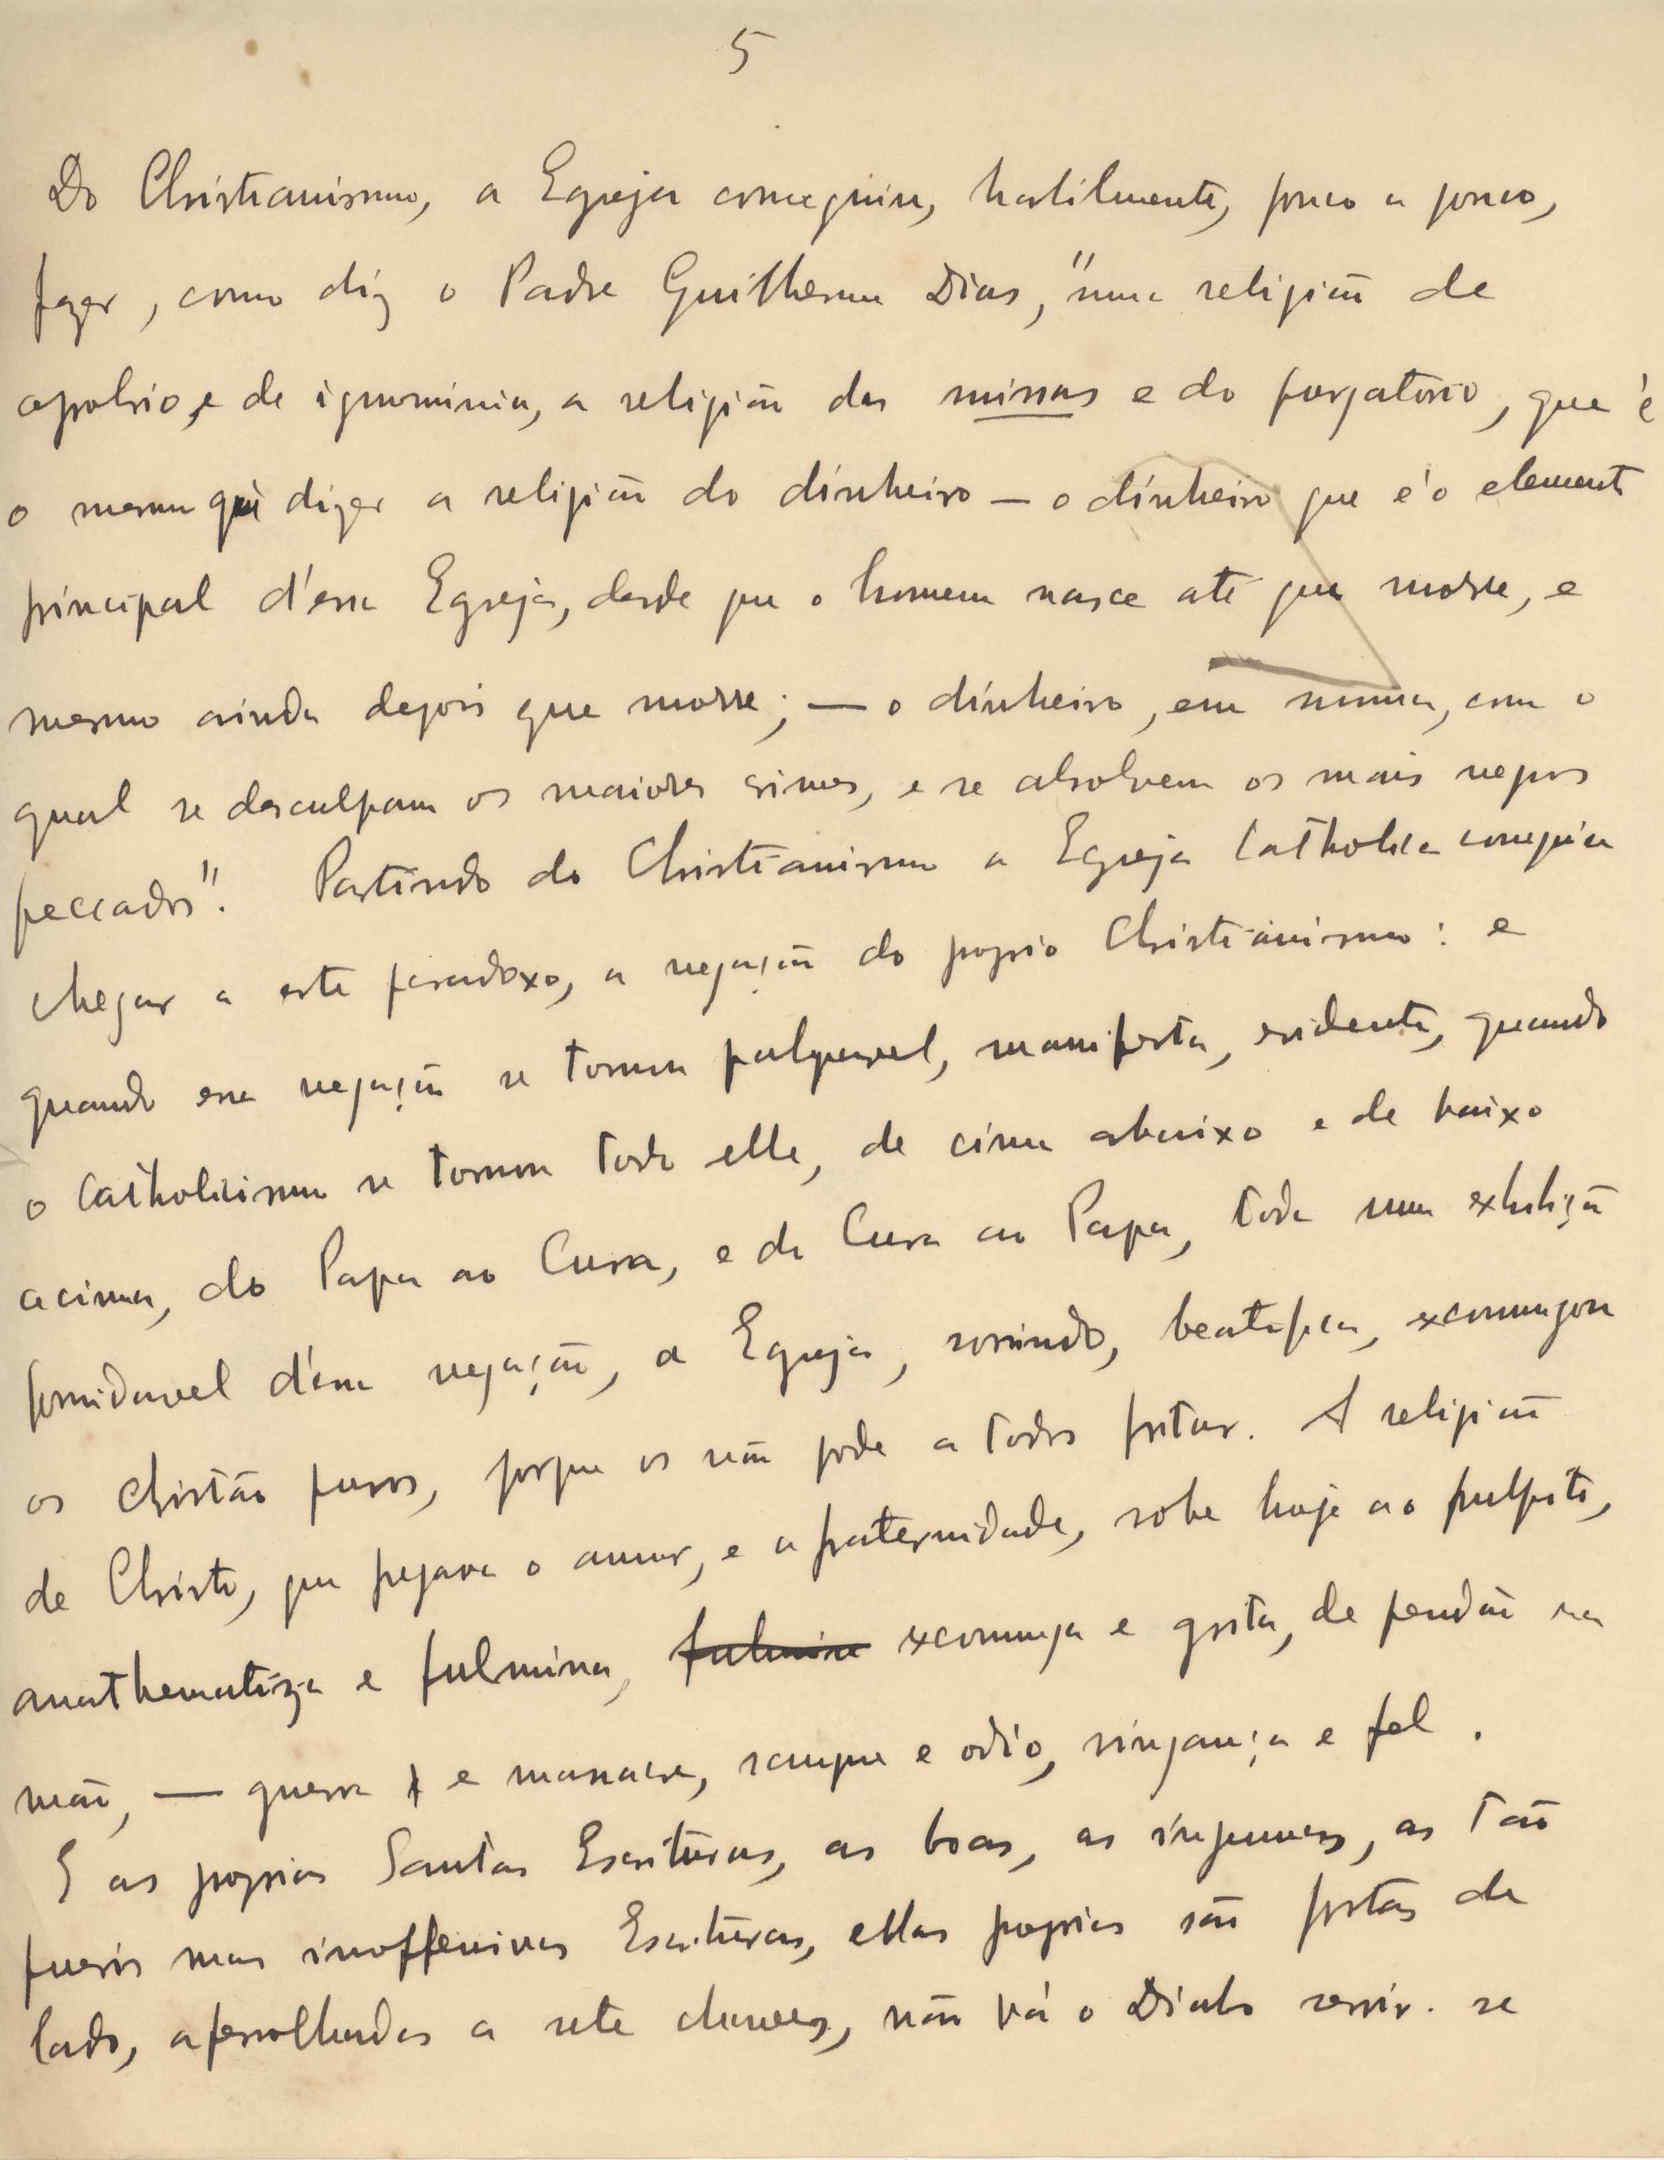 5
Do Christianismo, a Egreja conseguiu, habilmente, pouco a pouco,
fazer, como diz o Padre Guilherme Dias, "uma religião de
opobrio, e de ignominia, a religião das missas e do purgatorio, que é
o mesmo que dizer a religião do dinheiro — o dinheiro que é o elemento
principal d'essa Egreja, desde que o homem nasce até que morre, e
mesmo ainda depois que morre; — o dinheiro, em summa, com o
qual se desculpam os maiores crimes, e se absolvem os mais negros
peccados". Partindo do Christianismo a Egreja Catholica conseguiu
chegar a este paradoxo, a negação do proprio Christianismo: e
quando essa negação se torna palpavel, manifesta, evidente, quando
o Catholicismo se torna todo elle, de cima abaixo e de baixo
acima, do Papa ao Cura, e do Cura ao Papa, toda uma exhibição
formidavel d'essa negação, a Egreja, sorrindo, beatifica, excomunga
os christãos puros, porque os não pode a todos fritar. A religião
de Christo, que pregava o amor, e a fraternidade, sobe hoje ao pulpito,
anathematiza e fulmina, fulmina excomunga e grita, de pendão na
mão, — guerra e massacre, sangue e odio, vingança e fel.
E as proprias Santas Escrituras, as boas, as ingenuas, as tão
pueris mas inoffensivas Escrituras, ellas proprias são postas de
lado, aferrolhadas a sete chaves, não vá o Diabo servir-se